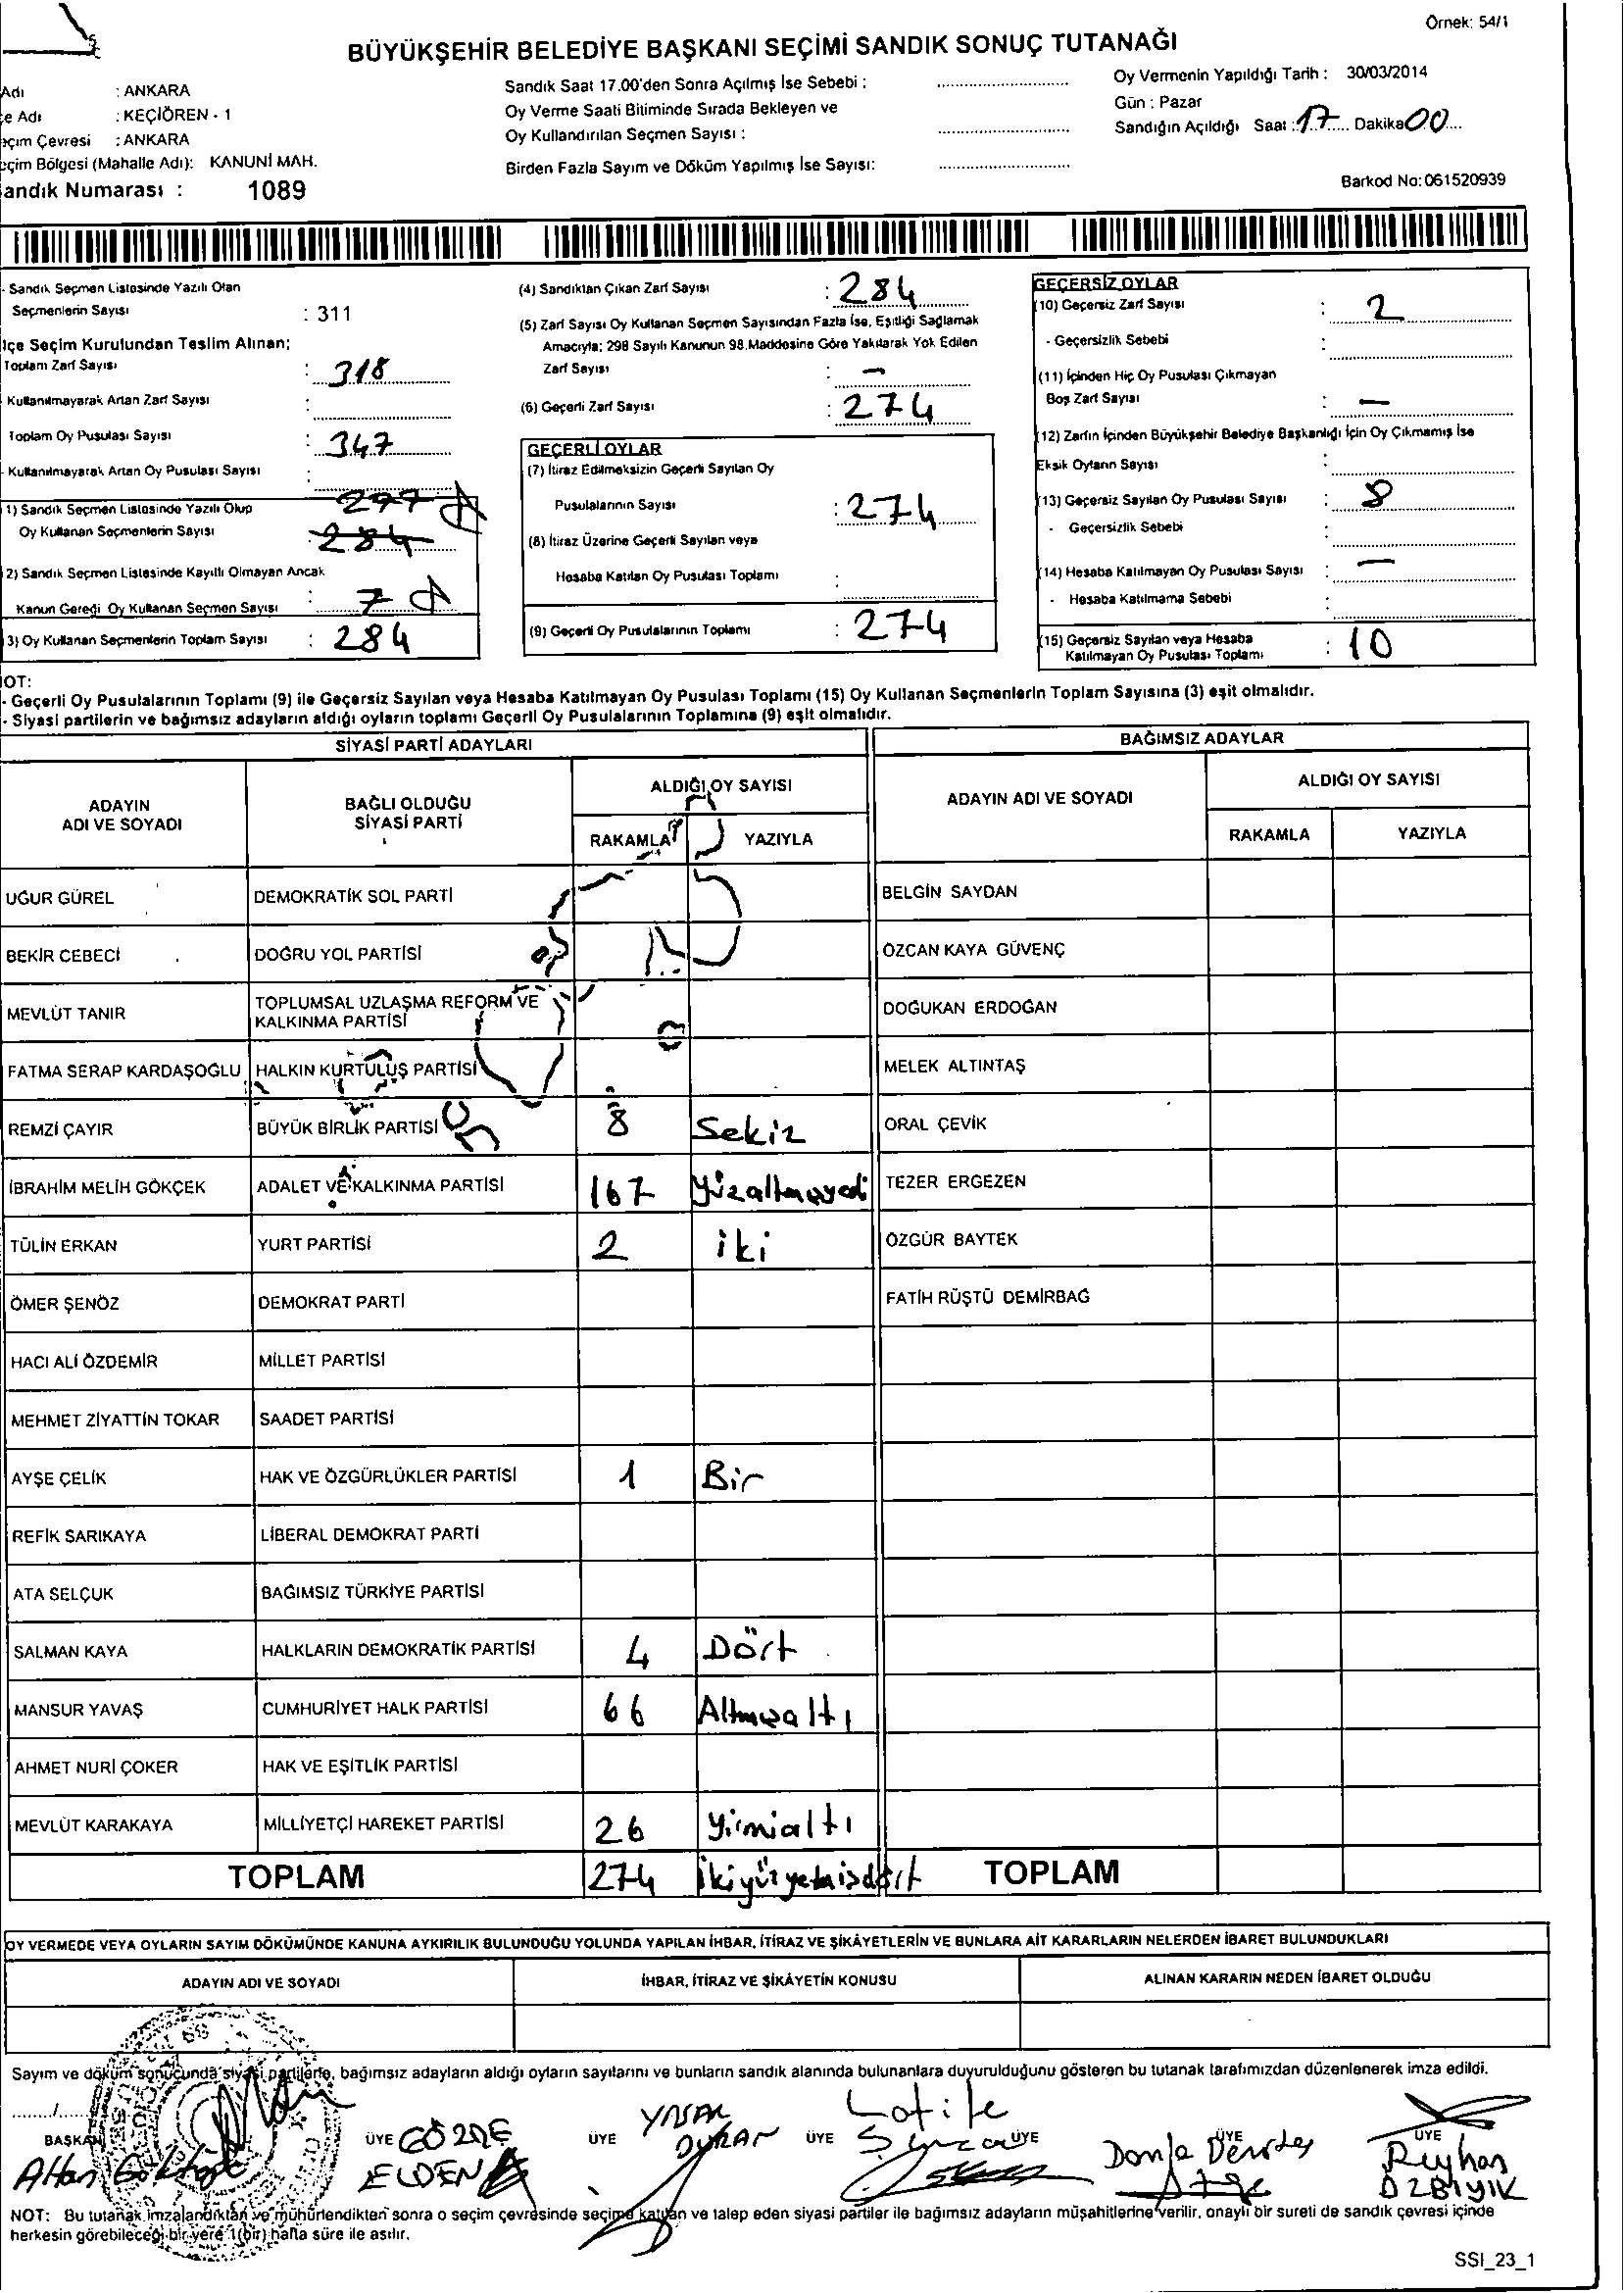 Örnek: 54/1
BÜYÜKŞEHİR BELEDİYE BAŞKANI SEÇİMİ SANDIK SONUÇ TUTANAĞI
Adı : ANKARA
çe Adı : KEÇİÖREN - 1
eçim Çevresi : ANKARA
eçim Bölgesi (Mahalle Adı): KANUNİ MAH.
andık Numarası : 1089
Sandık Saat 17.00'den Sonra Açılmış İse Sebebi :
Oy Verme Saati Bitiminde Sırada Bekleyen ve
Oy Kullandırılan Seçmen Sayısı :
Birden Fazla Sayım ve Döküm Yapılmış İse Sayısı:
Oy Vermenin Yapıldığı Tarih : 30/03/2014
Gün : Pazar
Sandığın Açıldığı Saat : 17 Dakika 00
Barkod No: 061520939
- Sandık Seçmen Listesinde Yazılı Olan
Seçmenlerin Sayısı : 311
lçe Seçim Kurulundan Teslim Alınan;
Toplam Zarf Sayısı : 318
Kullanılmayarak Artan Zarf Sayısı :
Toplam Oy Pusulası Sayısı : 347
- Kullanılmayarak Artan Oy Pusulası Sayısı :
1) Sandık Seçmen Listesinde Yazılı Olup 277
Oy Kullanan Seçmenlerin Sayısı 284
2) Sandık Seçmen Listesinde Kayıtlı Olmayan Ancak
Kanun Gereği Oy Kullanan Seçmen Sayısı : 7
3) Oy Kullanan Seçmenlerin Toplam Sayısı : 284
(4) Sandıktan Çıkan Zarf Sayısı : 284
(5) Zarf Sayısı Oy Kullanan Seçmen Sayısından Fazla İse, Eşitliği Sağlamak
Amacıyla; 298 Sayılı Kanunun 98.Maddesine Göre Yakılarak Yok Edilen
Zarf Sayısı : -
(6) Geçerli Zarf Sayısı : 274
GEÇERLİ OYLAR
(7) İtiraz Edilmeksizin Geçerli Sayılan Oy
Pusulalarının Sayısı : 274
(8) İtiraz Üzerine Geçerli Sayılan veya
Hesaba Katılan Oy Pusulası Toplamı :
(9) Geçerli Oy Pusulalarının Toplamı : 274
GEÇERSİZ OYLAR
(10) Geçersiz Zarf Sayısı : 2
- Geçersizlik Sebebi :
(11) İçinden Hiç Oy Pusulası Çıkmayan
Boş Zarf Sayısı : -
(12) Zarfın İçinden Büyükşehir Belediye Başkanlığı İçin Oy Çıkmamış İse
Eksik Oyların Sayısı :
(13) Geçersiz Sayılan Oy Pusulası Sayısı : 8
- Geçersizlik Sebebi :
(14) Hesaba Katılmayan Oy Pusulası Sayısı : -
- Hesaba Katılmama Sebebi :
(15) Geçersiz Sayılan veya Hesaba
Katılmayan Oy Pusulası Toplamı : 10
NOT:
- Geçerli Oy Pusulalarının Toplamı (9) ile Geçersiz Sayılan veya Hesaba Katılmayan Oy Pusulası Toplamı (15) Oy Kullanan Seçmenlerin Toplam Sayısına (3) eşit olmalıdır.
- Siyasi partilerin ve bağımsız adayların aldığı oyların toplamı Geçerli Oy Pusulalarının Toplamına (9) eşit olmalıdır.
SİYASİ PARTİ ADAYLARI BAĞIMSIZ ADAYLAR
ADAYIN ADI VE SOYADI BAĞLI OLDUĞU SİYASİ PARTİ ALDIĞI OY SAYISI ADAYIN ADI VE SOYADI ALDIĞI OY SAYISI
RAKAMLA YAZIYLA RAKAMLA YAZIYLA
UĞUR GÜREL DEMOKRATİK SOL PARTİ BELGİN SAYDAN
BEKİR CEBECİ DOĞRU YOL PARTİSİ ÖZCAN KAYA GÜVENÇ
MEVLÜT TANIR TOPLUMSAL UZLAŞMA REFORM VE KALKINMA PARTİSİ DOĞUKAN ERDOĞAN
FATMA SERAP KARDAŞOĞLU HALKIN KURTULUŞ PARTİSİ MELEK ALTINTAŞ
REMZİ ÇAYIR BÜYÜK BİRLİK PARTİSİ 8 Sekiz ORAL ÇEVİK
İBRAHİM MELİH GÖKÇEK ADALET VE KALKINMA PARTİSİ 167 Yüzaltmışyedi TEZER ERGEZEN
TÜLİN ERKAN YURT PARTİSİ 2 iki ÖZGÜR BAYTEK
ÖMER ŞENÖZ DEMOKRAT PARTİ FATİH RÜŞTÜ DEMİRBAĞ
HACI ALİ ÖZDEMİR MİLLET PARTİSİ
MEHMET ZİYATTİN TOKAR SAADET PARTİSİ
AYŞE ÇELİK HAK VE ÖZGÜRLÜKLER PARTİSİ 1 Bir
REFİK SARIKAYA LİBERAL DEMOKRAT PARTİ
ATA SELÇUK BAĞIMSIZ TÜRKİYE PARTİSİ
SALMAN KAYA HALKLARIN DEMOKRATİK PARTİSİ 4 Dört
MANSUR YAVAŞ CUMHURİYET HALK PARTİSİ 66 Altmışaltı
AHMET NURİ ÇOKER HAK VE EŞİTLİK PARTİSİ
MEVLÜT KARAKAYA MİLLİYETÇİ HAREKET PARTİSİ 26 Yirmialtı
TOPLAM 274 İkiyüzyetmişdört TOPLAM
OY VERMEDE VEYA OYLARIN SAYIM DÖKÜMÜNDE KANUNA AYKIRILIK BULUNDUĞU YOLUNDA YAPILAN İHBAR, İTİRAZ VE ŞİKÂYETLERİN VE BUNLARA AİT KARARLARIN NELERDEN İBARET BULUNDUKLARI
ADAYIN ADI VE SOYADI İHBAR, İTİRAZ VE ŞİKÂYETİN KONUSU ALINAN KARARIN NEDEN İBARET OLDUĞU
Sayım ve döküm sonucunda siyasi partilerle, bağımsız adayların aldığı oyların sayılarını ve bunların sandık alanında bulunanlara duyurulduğunu gösteren bu tutanak tarafımızdan düzenlenerek imza edildi.
BAŞKAN ÜYE GÖZDE ELDEN ÜYE YAŞAR DURAN ÜYE Latife ÜYE ÜYE ÜYE Reyhan ÖZBIYIK
NOT: Bu tutanak imzalandıktan ve mühürlendikten sonra o seçim çevresinde seçime katılan ve talep eden siyasi partiler ile bağımsız adayların müşahitlerine verilir, onaylı bir sureti de sandık çevresi içinde
herkesin görebileceği bir yere 1(bir) hafta süre ile asılır.
SSI_23_1